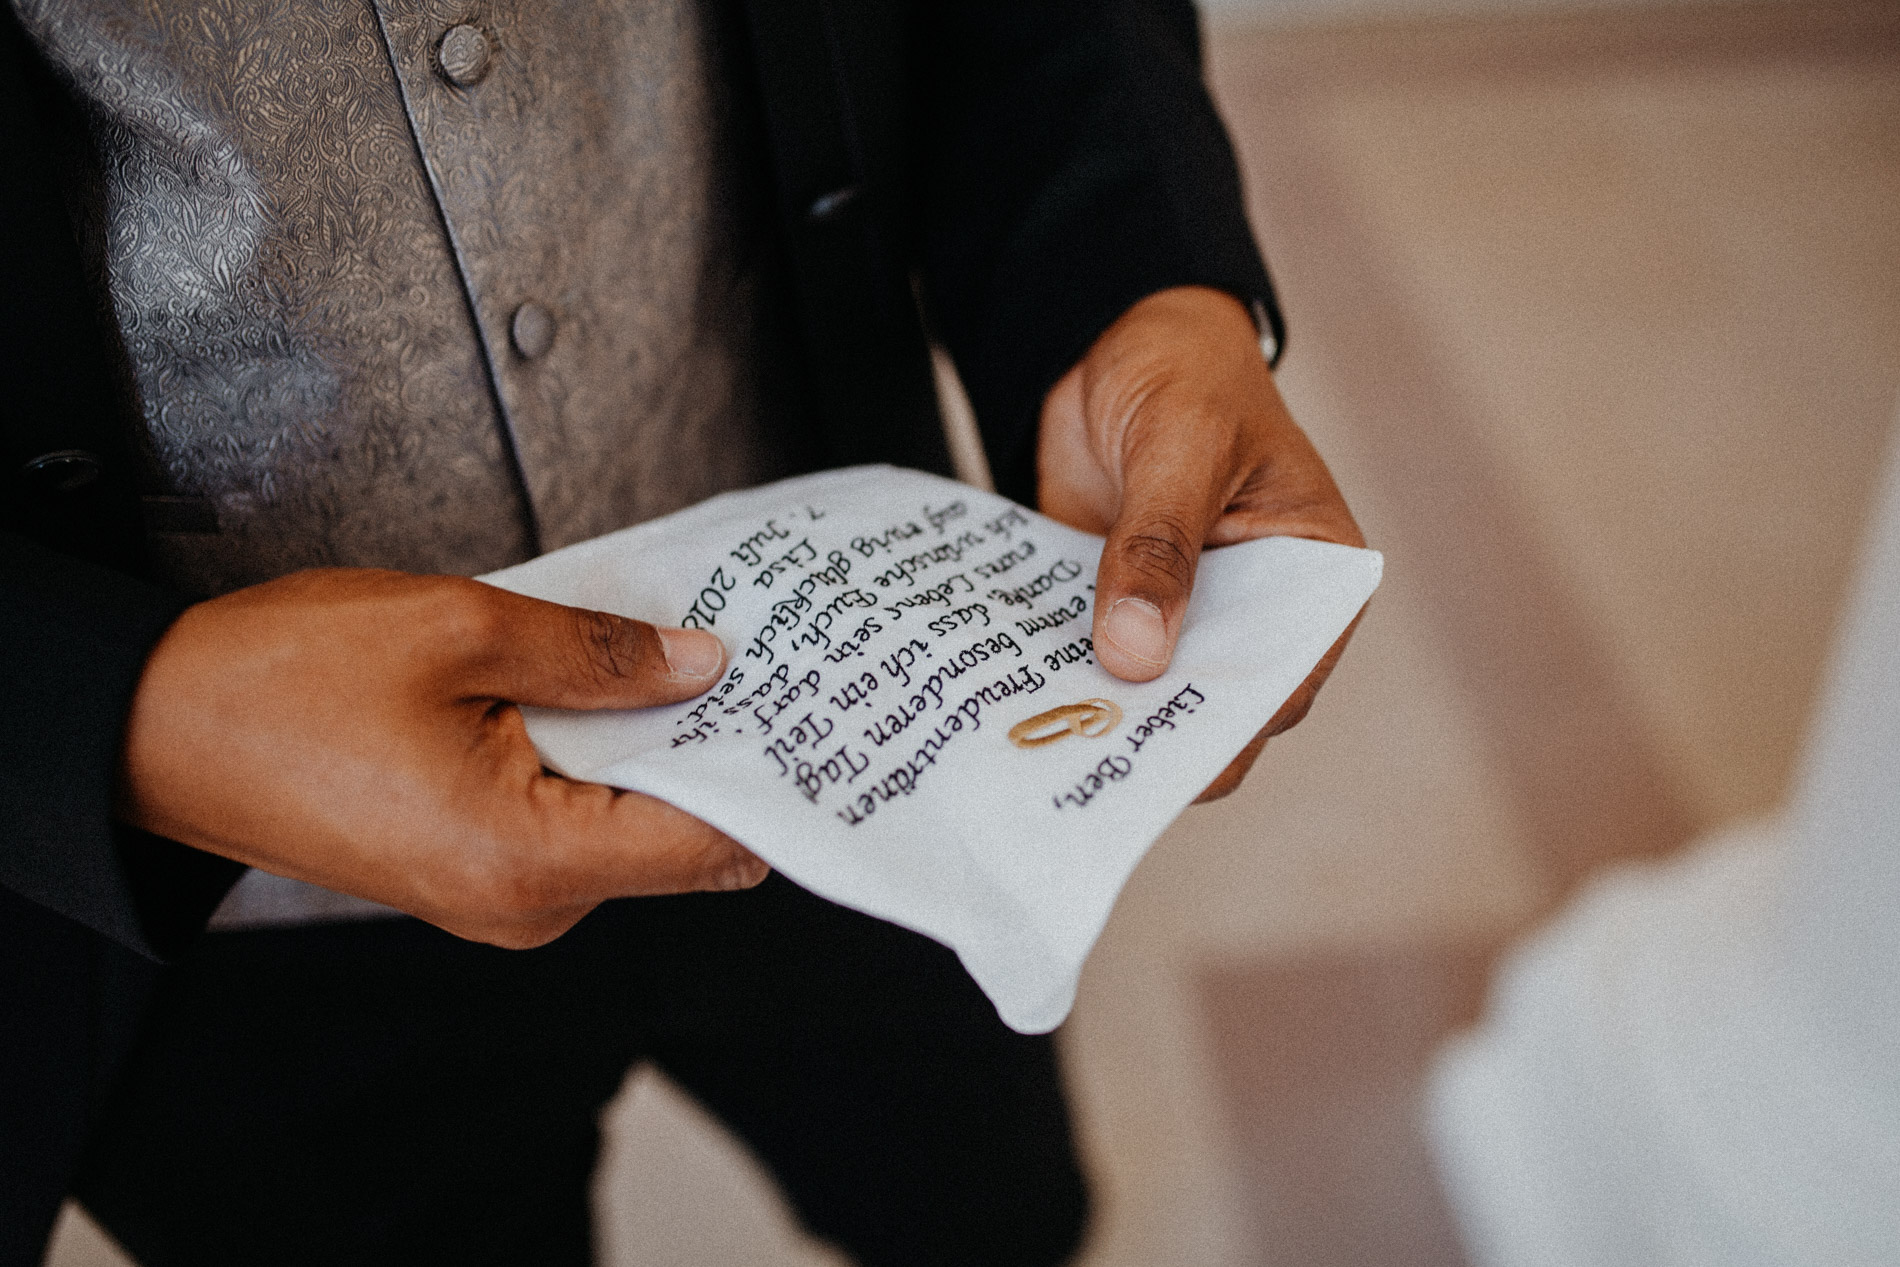 Lieber Ben,
eine Freudentränen
eurem besonderen Tag!
Danke, dass ich ein Teil
eures Lebens sein darf.
Ich wünsche Euch, dass ihr
auf ewig glücklich seid.
Lisa
7. Juli 2018